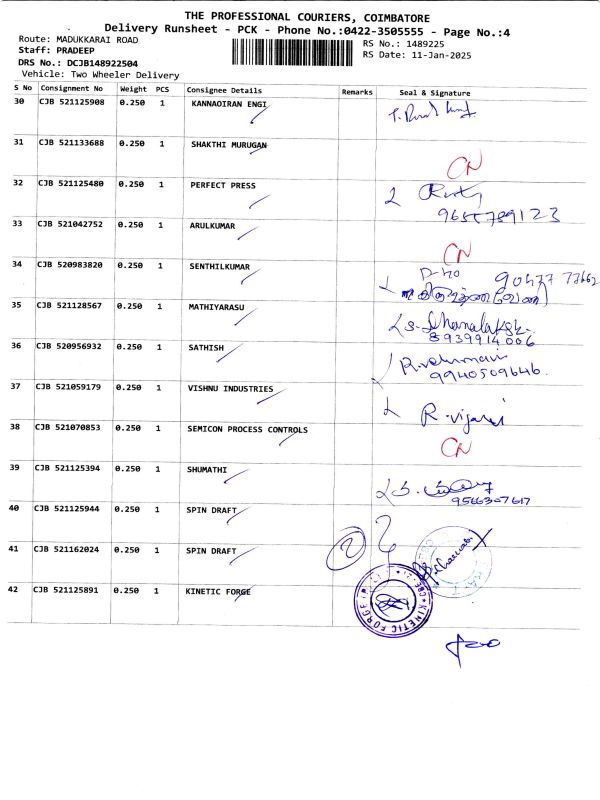 THE PROFESSIONAL COURIERS, COIMBATORE
Delivery Runsheet - PCK - Phone No.:0422-3505555 - Page No.:4
Route: MADUKKARAI ROAD
RS No.: 1489225
Staff: PRADEEP
RS Date: 11-Jan-2025
DRS No.: DCJB148922504
Vehicle: Two Wheeler Delivery
S No Consignment No Weight PCS Consignee Details Remarks Seal & Signature
30 CJB 521125908 0.250 1 KANNAOIRAN ENGI
31 CJB 521133688 0.250 1 SHAKTHI MURUGAN CN
32 CJB 521125480 0.250 1 PERFECT PRESS
9655789123
33 CJB 521042752 0.250 1 ARULKUMAR CN
34 CJB 520983820 0.250 1 SENTHILKUMAR
35 CJB 521128567 0.250 1 MATHIYARASU
8939914006
36 CJB 520956932 0.250 1 SATHISH
9940509646
37 CJB 521059179 0.250 1 VISHNU INDUSTRIES
38 CJB 521070853 0.250 1 SEMICON PROCESS CONTROLS CN
39 CJB 521125394 0.250 1 SHUMATHI
9566307617
40 CJB 521125944 0.250 1 SPIN DRAFT
41 CJB 521162024 0.250 1 SPIN DRAFT
2
42 CJB 521125891 0.250 1 KINETIC FORGE
KINETIC FORGE